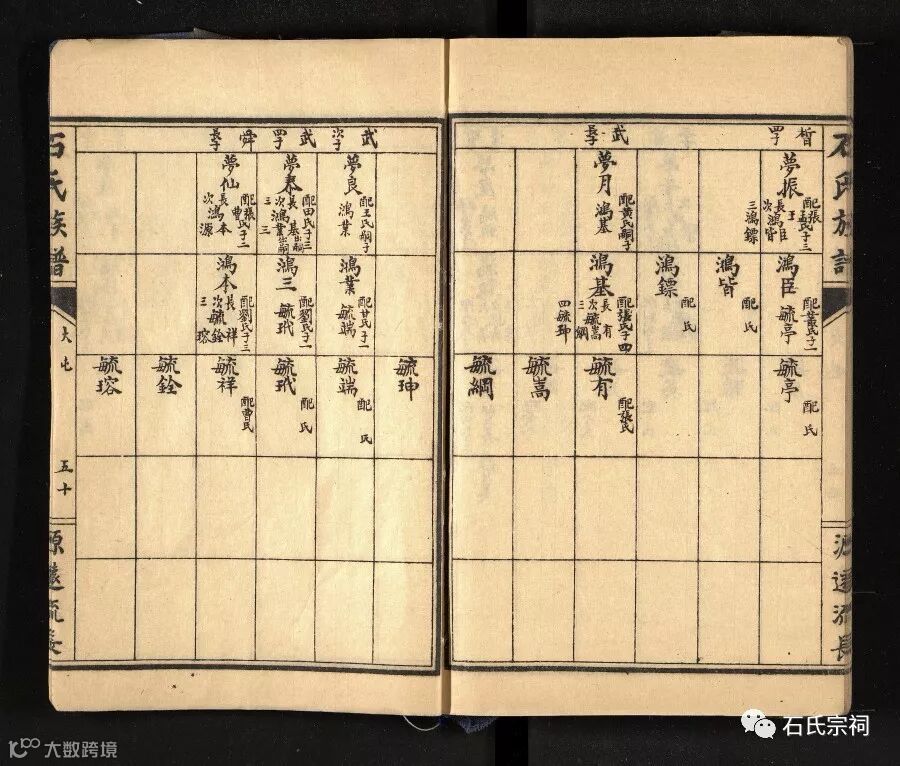 石氏族譜
源遠流長
晳 四子
夢振
配張氏王氏子三
長鴻臣
次鴻皆
三鴻鏢
鴻臣
配葉氏子一
毓亭
毓亭
配 氏
鴻皆
配 氏
鴻鏢
配 氏
武 長子
夢月
配黃氏嗣子
鴻基
鴻基
配張氏子四
長 有
次毓嵩
三 綱
四毓珅
毓有
配張氏
毓嵩
毓綱
毓珅
武 次子
夢良
配王氏嗣子
鴻業
鴻業
配甘氏子一
毓端
毓端
配 氏
武 四子
夢泰
配田氏子三
長 基出嗣
次鴻業出嗣
三 三
鴻三
配劉氏子一
毓玳
毓玳
配 氏
舜 長子
夢仙
配張氏曹氏子二
長鴻本
次鴻源
鴻本
配劉氏子三
長 祥
次毓銓
三 瑢
毓祥
配曹氏
毓銓
毓瑢
石氏族譜
大屯
五十
源遠流長
石氏宗祠
大数跨境